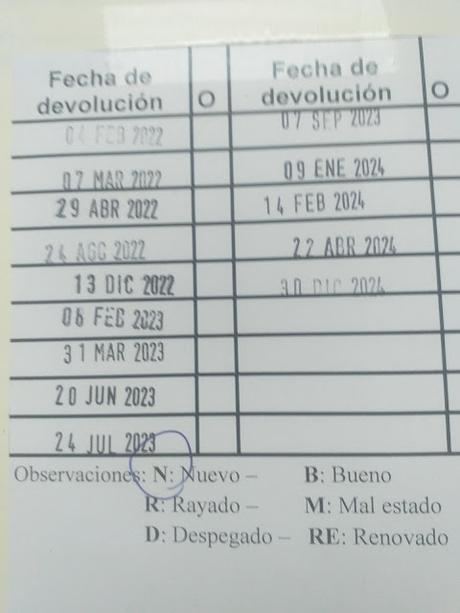 Fecha de devolución O Fecha de devolución O
04 FEB 2022 07 SEP 2023
07 MAR 2022 09 ENE 2024
29 ABR 2022 14 FEB 2024
24 AGO 2022 22 ABR 2024
13 DIC 2022 30 DIC 2024
06 FEB 2023
31 MAR 2023
20 JUN 2023
24 JUL 2023
Observaciones: N: Nuevo – B: Bueno
R: Rayado – M: Mal estado
D: Despegado – RE: Renovado